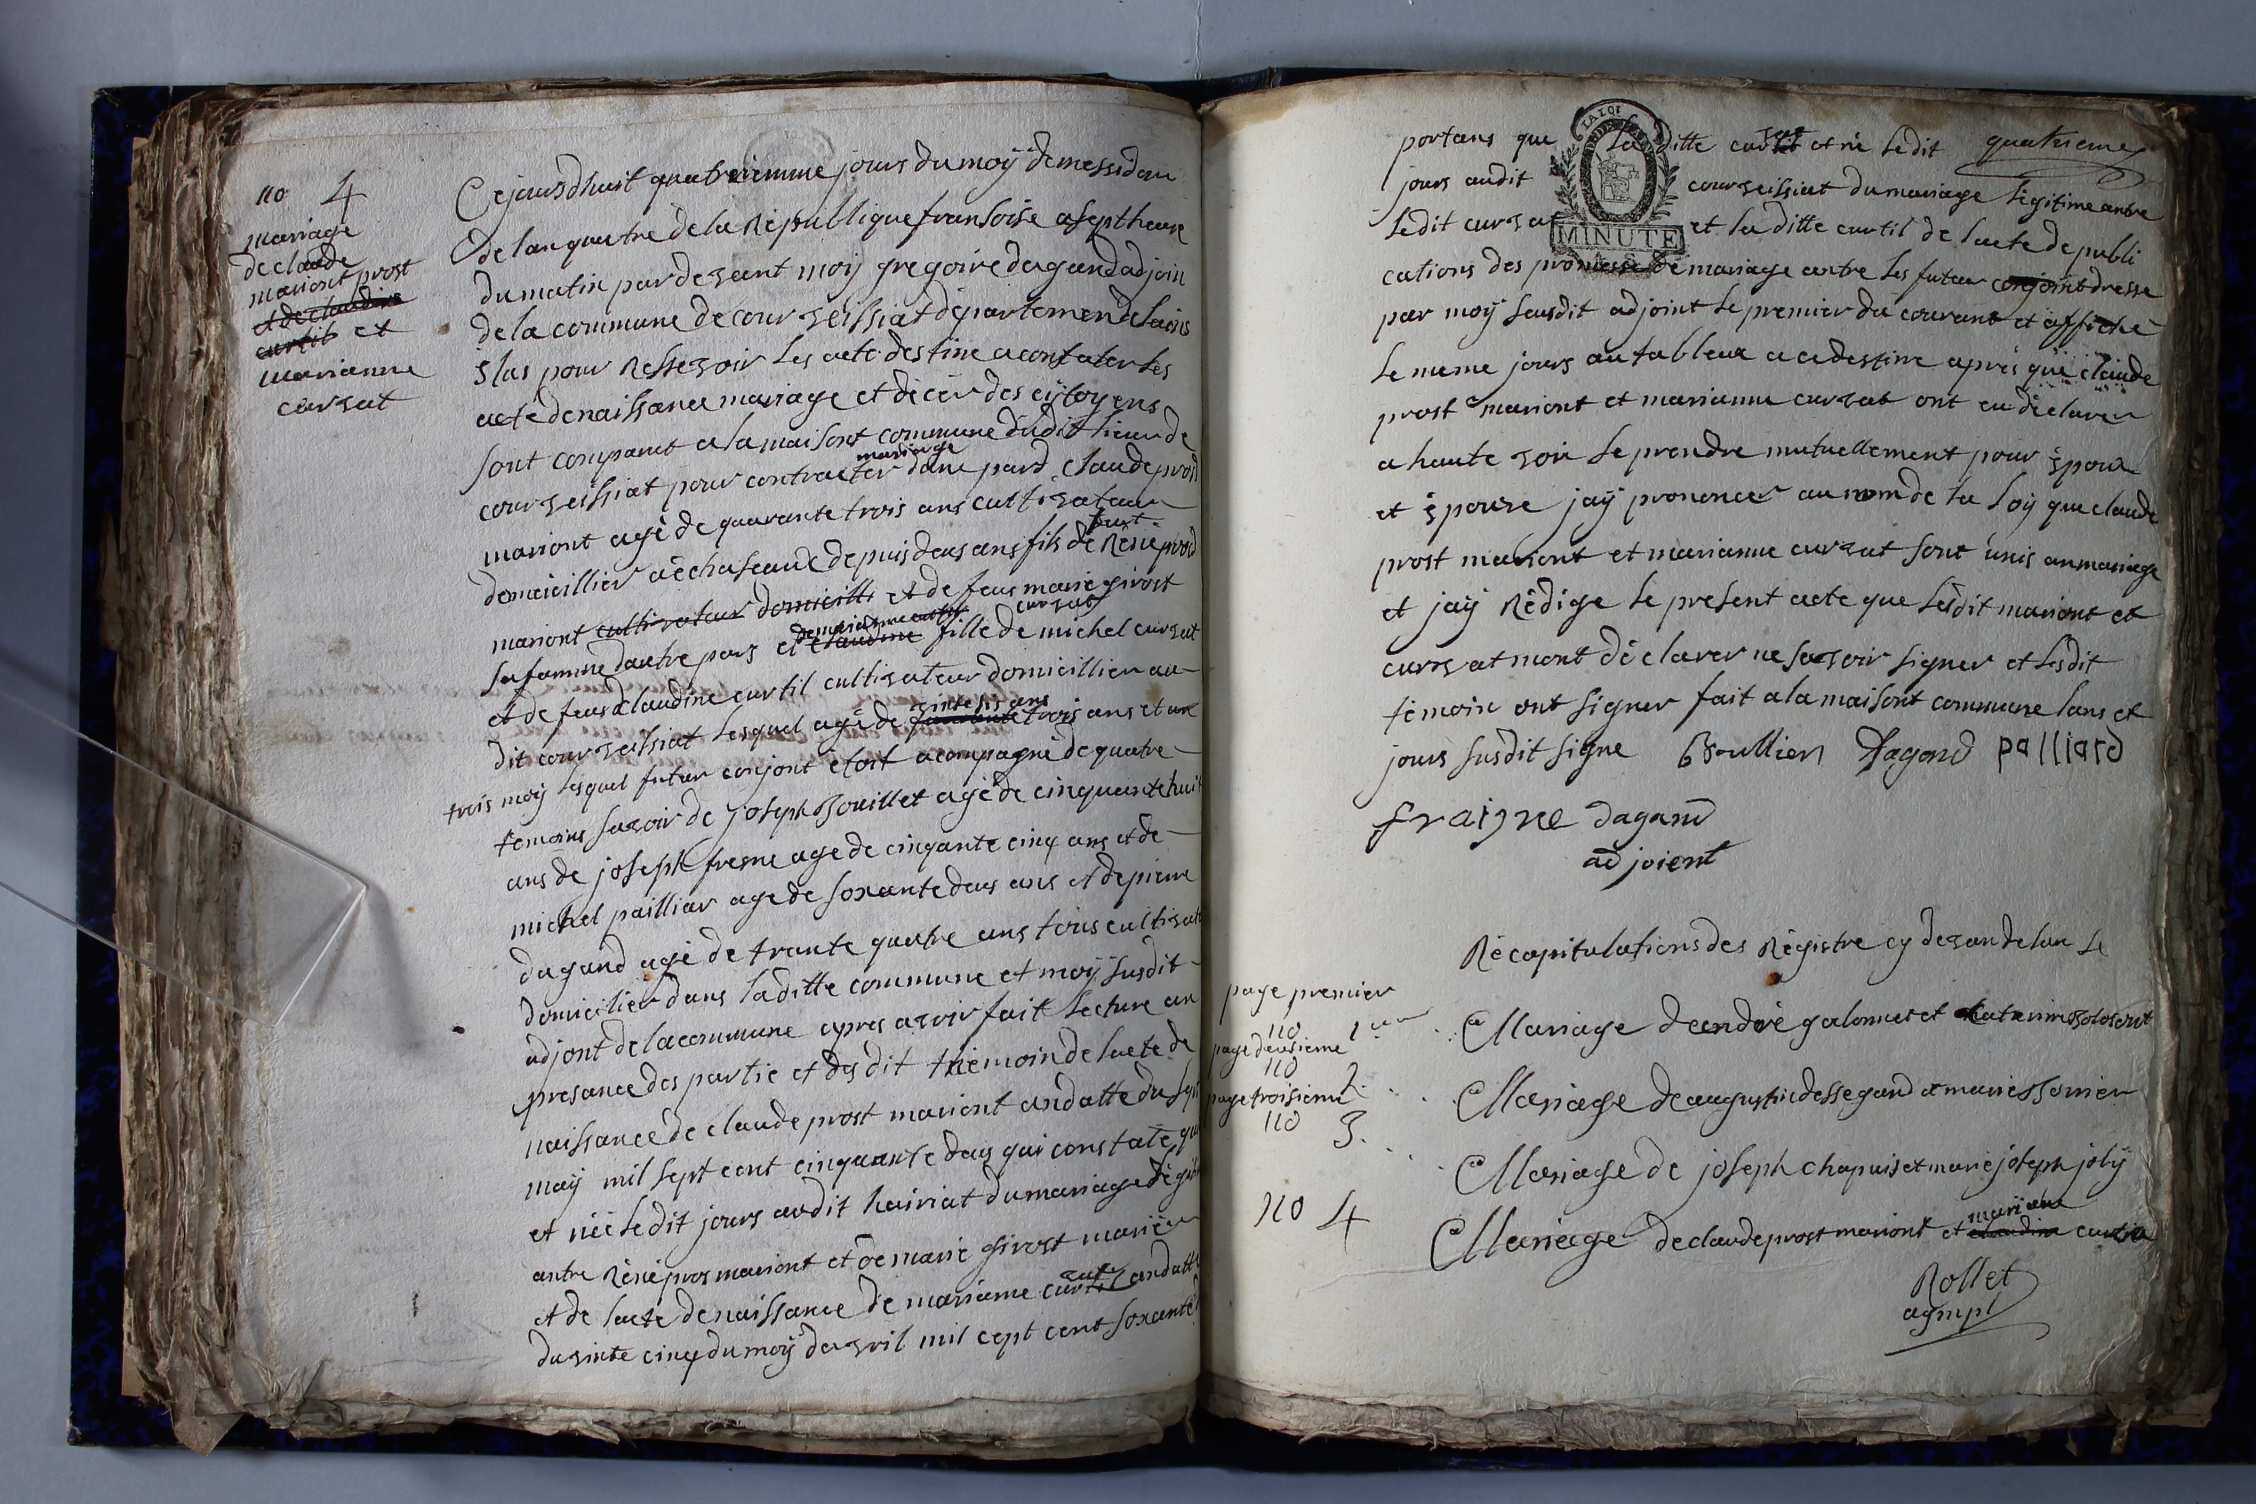 no 4
mariage
de claude
mariont prost
et de claudine
curtil et
marianne
curvat
Ce jourdhuit quatriemme jours du moÿ de messidour
de lan quatre de la Républigue fransoise a sept heure
du matin par devant moÿ gregoire dagand adjoin
de la commune de courveissiat département de lains
élus pour Ressevoir les acte destine a contater les
acte de naissance mariage et décér des cytoyens
sont comparut a la maisont commune dudit lieu de
mariage
courveissiat pour contracter dune pard claude prost
mariont agé de quarante trois ans cultivateur
domicillier a échaseaud depuis deus ans fils de Réné prost
mariont cultivateur domicillié et de feus marie givost
curvat
sa famme dautre pars et claudine fille de michel curvat
et de feus claudine curtil cultivateur domicillier au
vinte sis ans
dit courveissiat lesquel agé de trois ans et
trois moÿ lesquel futur conjont étort acompagné de quatre
témoins savoir de joseph Bouillet agé de cinquante huit
ans de joseph fresne age de cinqante cinq ans et de
michel pailliar age de soxante deus ans et de pierre
dagand agé de trante quatre ans tous cultivat
domicilier dans laditte commune et moÿ susdit
adjont de la commune apres avoir fait lecture an
presance des partie et des dit témoin de lacte de
naissance de claude prost mariont andatte du sept
maÿ mil sept cent cinquante deus qui constate que
et néé ledit jours audit hairiat du mariage légit
antre Réné pros mariont et de marie givost mariér
et de lacte de naissance de marianne curtil andatte
du vinte cinq du moÿ davril mil cept cent soxante
portans que laditte curtil et né ledit quatrieme
jours audit courveissiat du mariage légitime antre
ledit curvat et laditte curtil de lacte de publi
cations des promesse de mariage antre les futur conjoint dresse
par moÿ sausdit adjoint le premier du courant et affiché
le meme jours au tableux a ce destine aprés que claude
prost mariont et marianne curvat ont eu déclarer
a haute voir se prendre mutuellement pour époux
et épouze jaÿ prononcer au nom de la loÿ que claude
prost mariont et marianne curvat sont unis an mariage
et jaÿ Rédige le present acte que lesdit mariont et
curvat mont déclarer ne savoir signer et lesdit
témoin ont signer fait a la maisont commune lans et
jours susdit signe Boullien dagand palliard
LA LOI
MINUTE
fraigne dagand
adjoient
Récapitulations des Régistre cy devan de lan 4
page premier
no 1
Mariage de andré galonnet et
page deusieme
no 2
Mariage de augustin dessegand et marie
page troisieme
no 3
Mariage de joseph chapuis et marie joseph jolÿ
mariane
no 4 Mariage de claude prost mariont et claudine curva
Rollet
agmpl